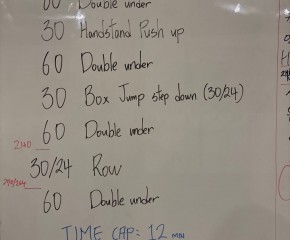 60 Double under
30 Handstand Push up
60 Double under
30 Box Jump step down (30/24)
60 Double under
240
30/24 Row
60 Double under
TIME CAP: 12 MIN